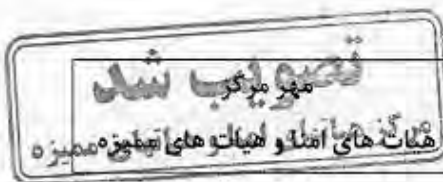 تصویب شد
مهر مرکز
هیات های امنا و هیات های ممیزه